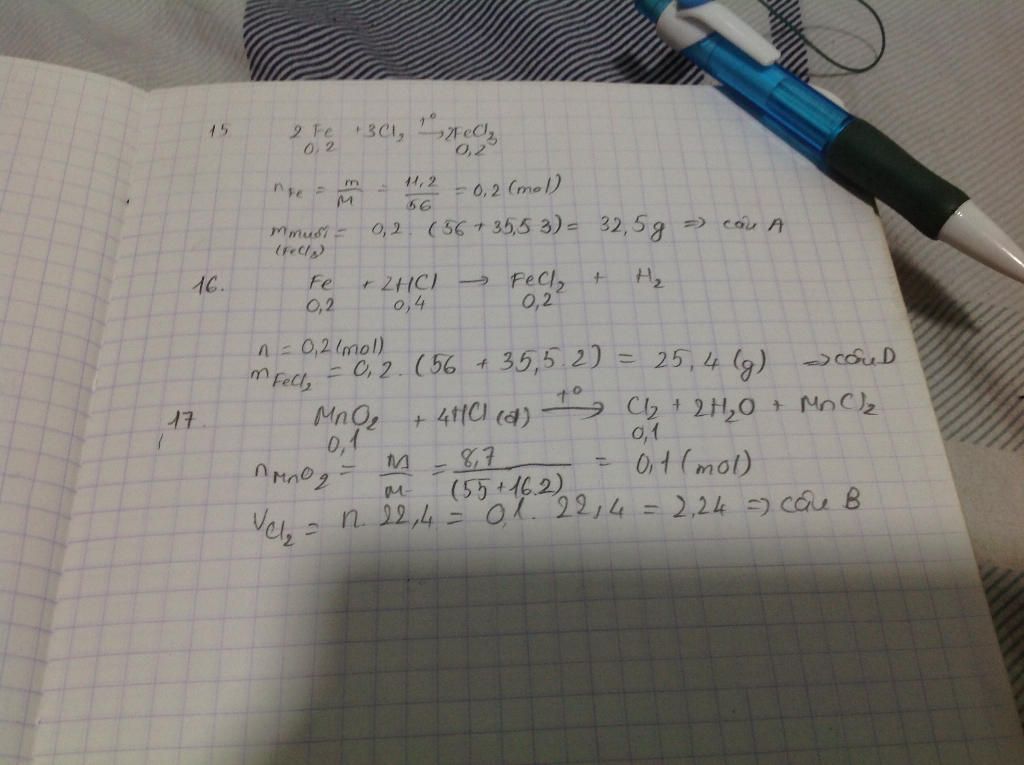 15 2Fe + 3Cl₂ t° → 2FeCl₃
0,2 0,2
nFe = m/M = 11,2/56 = 0,2 (mol)
mmuối = 0,2 . (56 + 35,5 3) = 32,5g => câu A
(FeCl₃)
16. Fe + 2HCl → FeCl₂ + H₂
0,2 0,4 0,2
n = 0,2 (mol)
mFeCl₂ = 0,2 . (56 + 35,5.2) = 25,4 (g) => câu D
17. MnO₂ + 4HCl (đ) t° → Cl₂ + 2H₂O + MnCl₂
0,1 0,1
nMnO₂ = m/M = 8,7/(55+16.2) = 0,1 (mol)
VCl₂ = n. 22,4 = 0,1. 22,4 = 2,24 => câu B